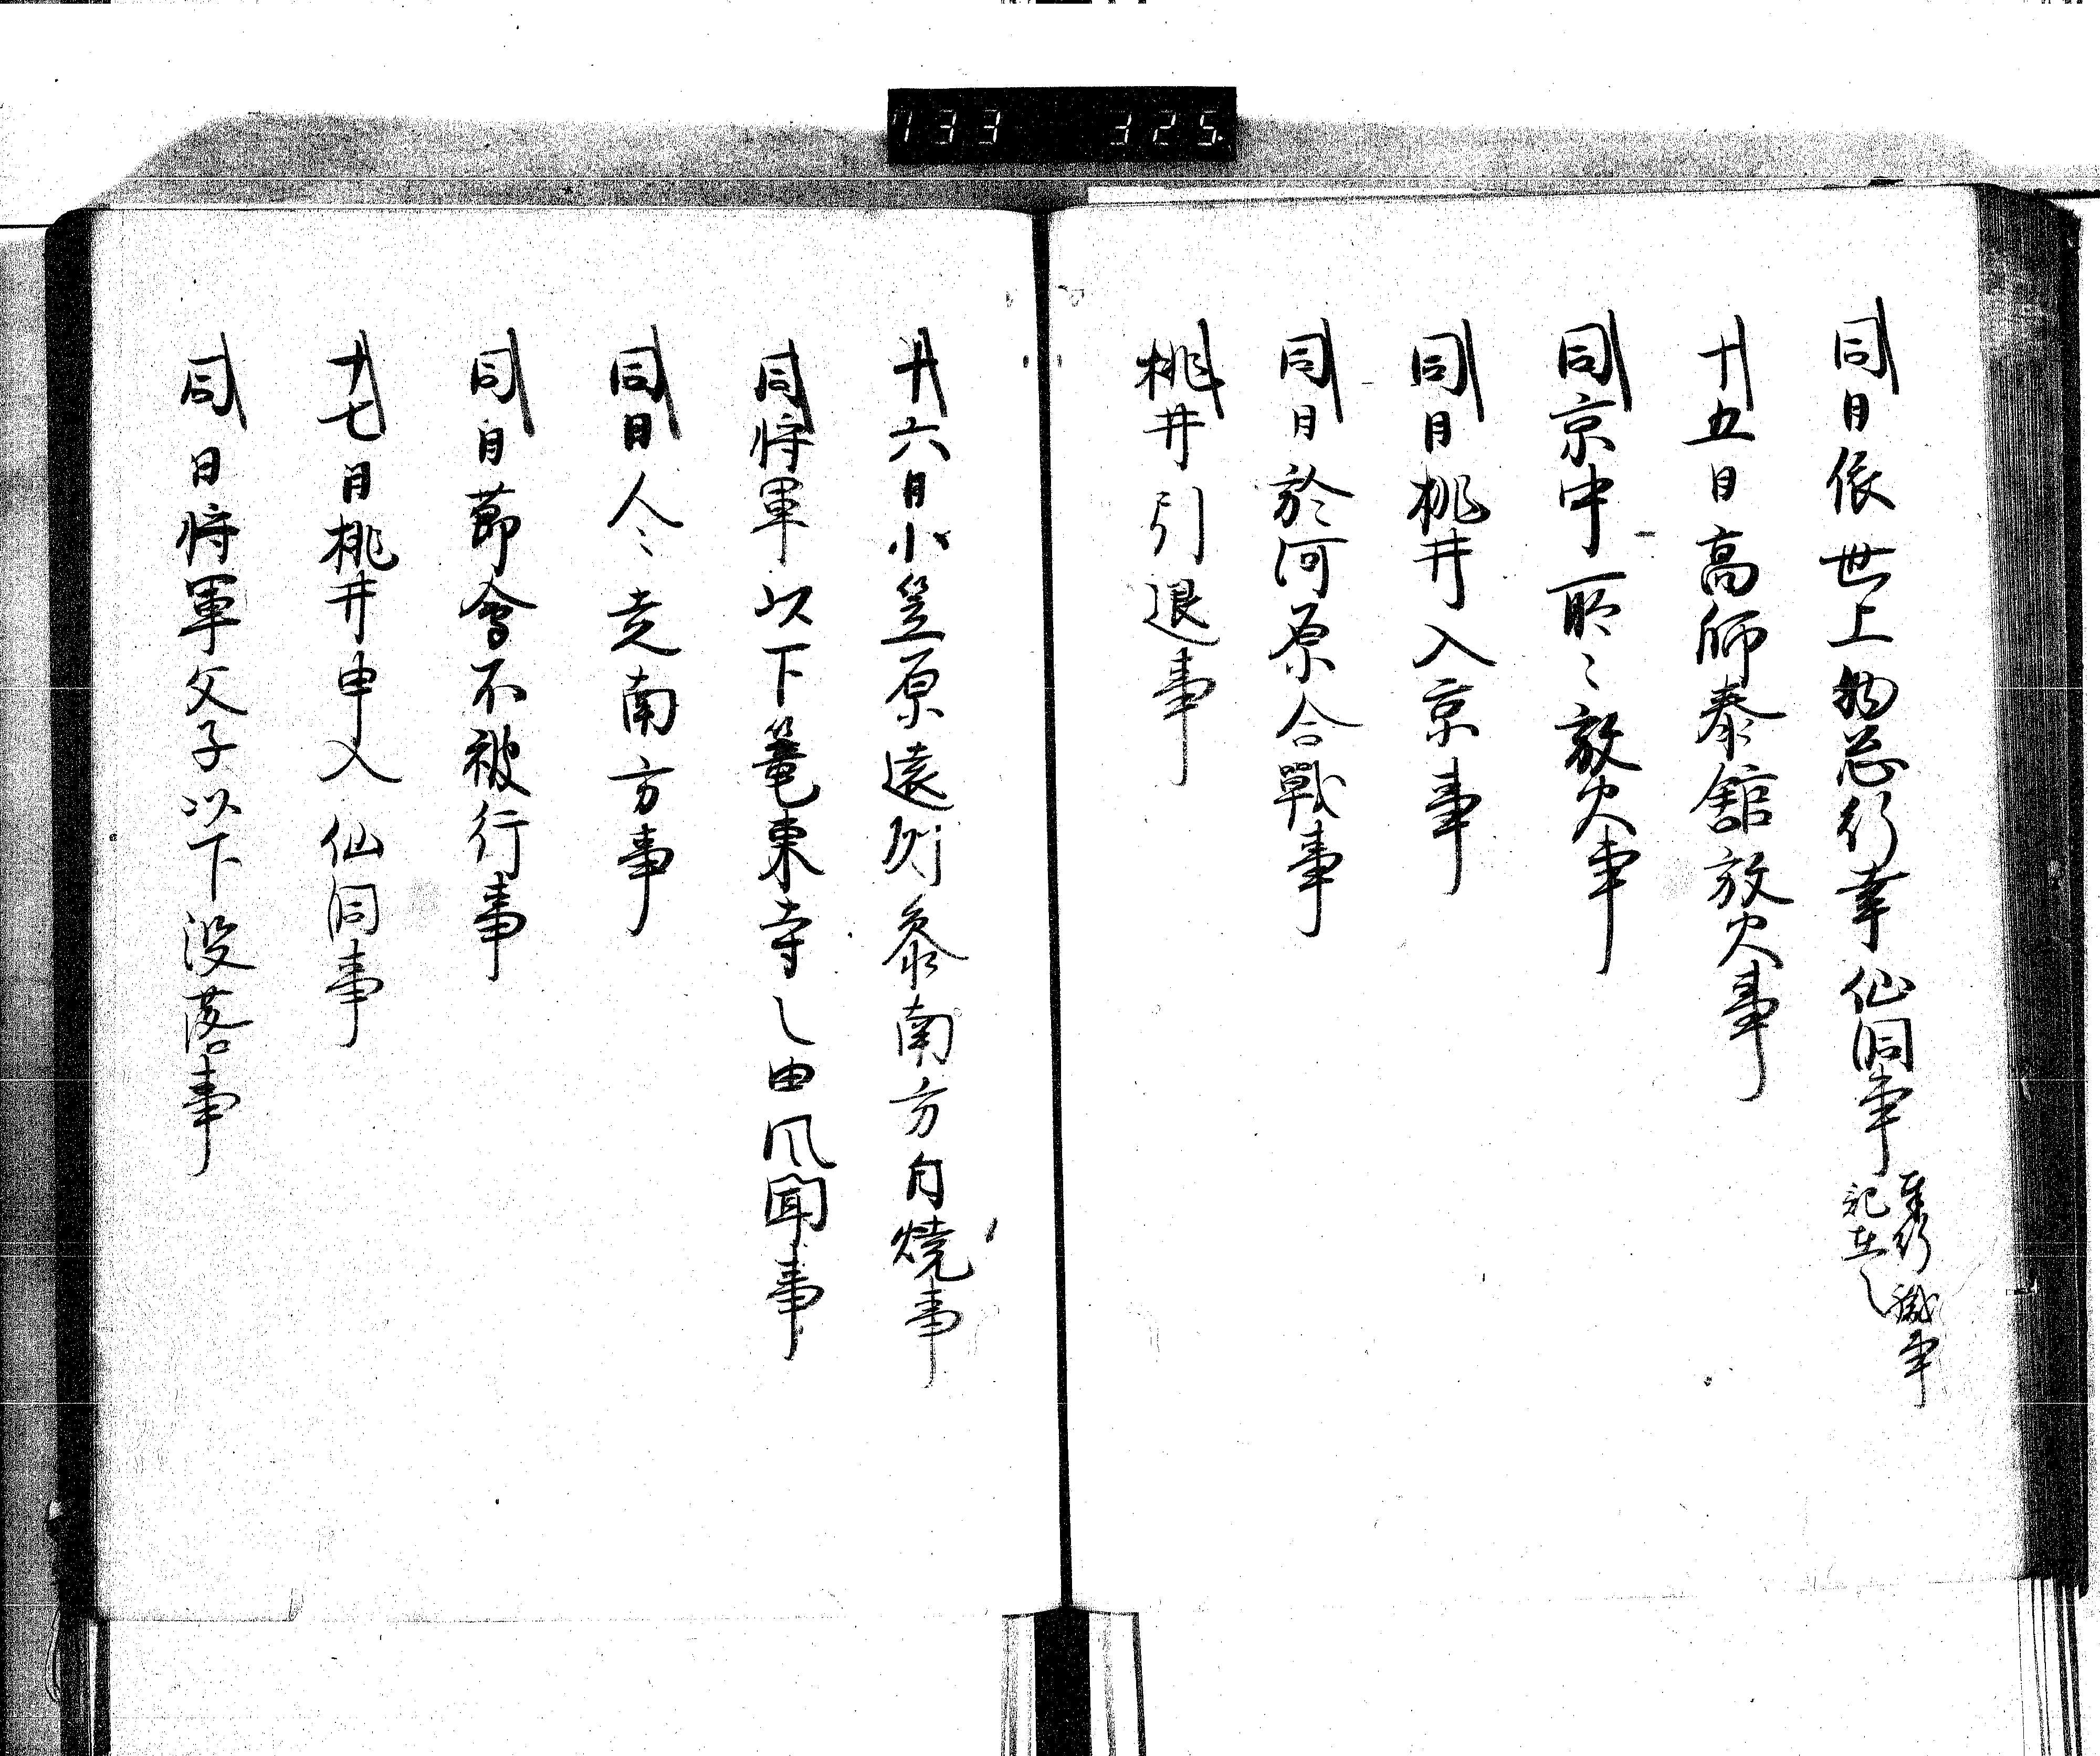 733 325
同日依世上物忩行幸仙洞事 奉行職事
記在之
十五日高師泰舘放火事
同京中所々放火事
同日桃井入京事
同日於河原合戰事
桃井引退事
十六日小笠原遠州参南方自燒事
同将軍以下篭東寺之由风聞事
同日人々走南方事
同日節會不被行事
十七日桃井申入仙洞事
同日将軍父子以下没落事